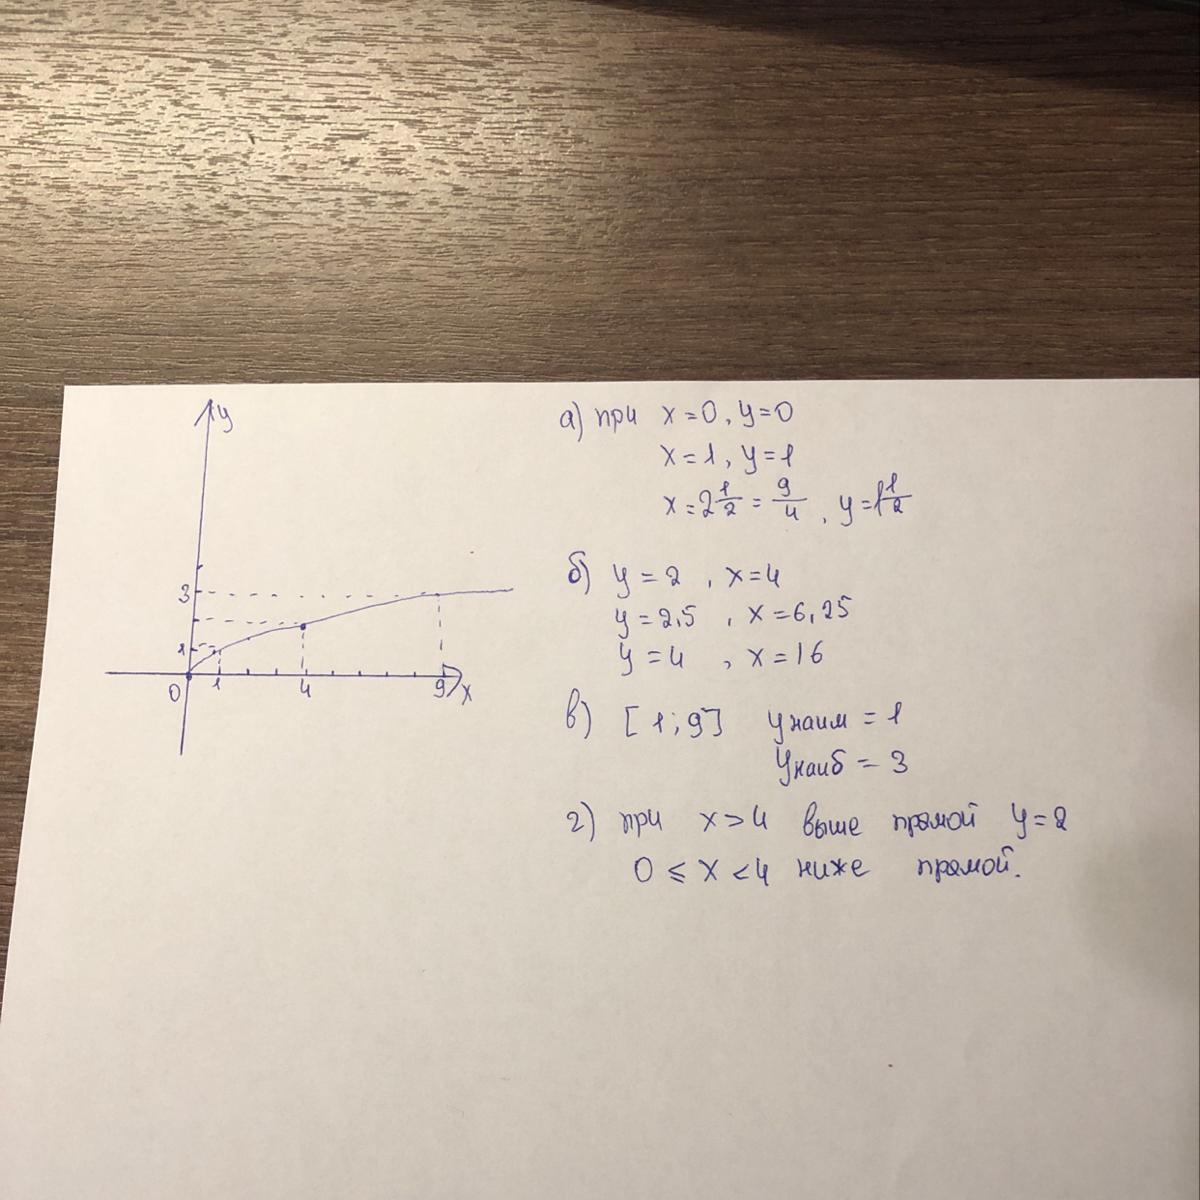 y
3
1
0 1 4 9 x
а) при x=0, y=0
x=1, y=1
x=2 1/2 = 9/4, y=1 1/2
б) y=2, x=4
y=2,5, x=6,25
y=4, x=16
в) [1;9] yнаим = 1
yнаиб = 3
г) при x>4 выше прямой y=2
0 ≤ x < 4 ниже прямой.